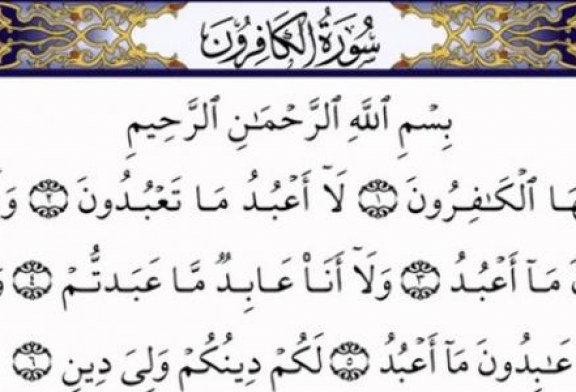 سُورَةُ الكَافِرُونَ
بِسْمِ ٱللَّهِ ٱلرَّحْمَٰنِ ٱلرَّحِيمِ
هَا ٱلْكَٰفِرُونَ ١ لَآ أَعْبُدُ مَا تَعْبُدُونَ ٢ وَ
مَآ أَعْبُدُ ٣ وَلَآ أَنَا۠ عَابِدٌ مَّا عَبَدتُّمْ ٤ وَ
عَٰبِدُونَ مَآ أَعْبُدُ ٥ لَكُمْ دِينُكُمْ وَلِىَ دِينِ ٦